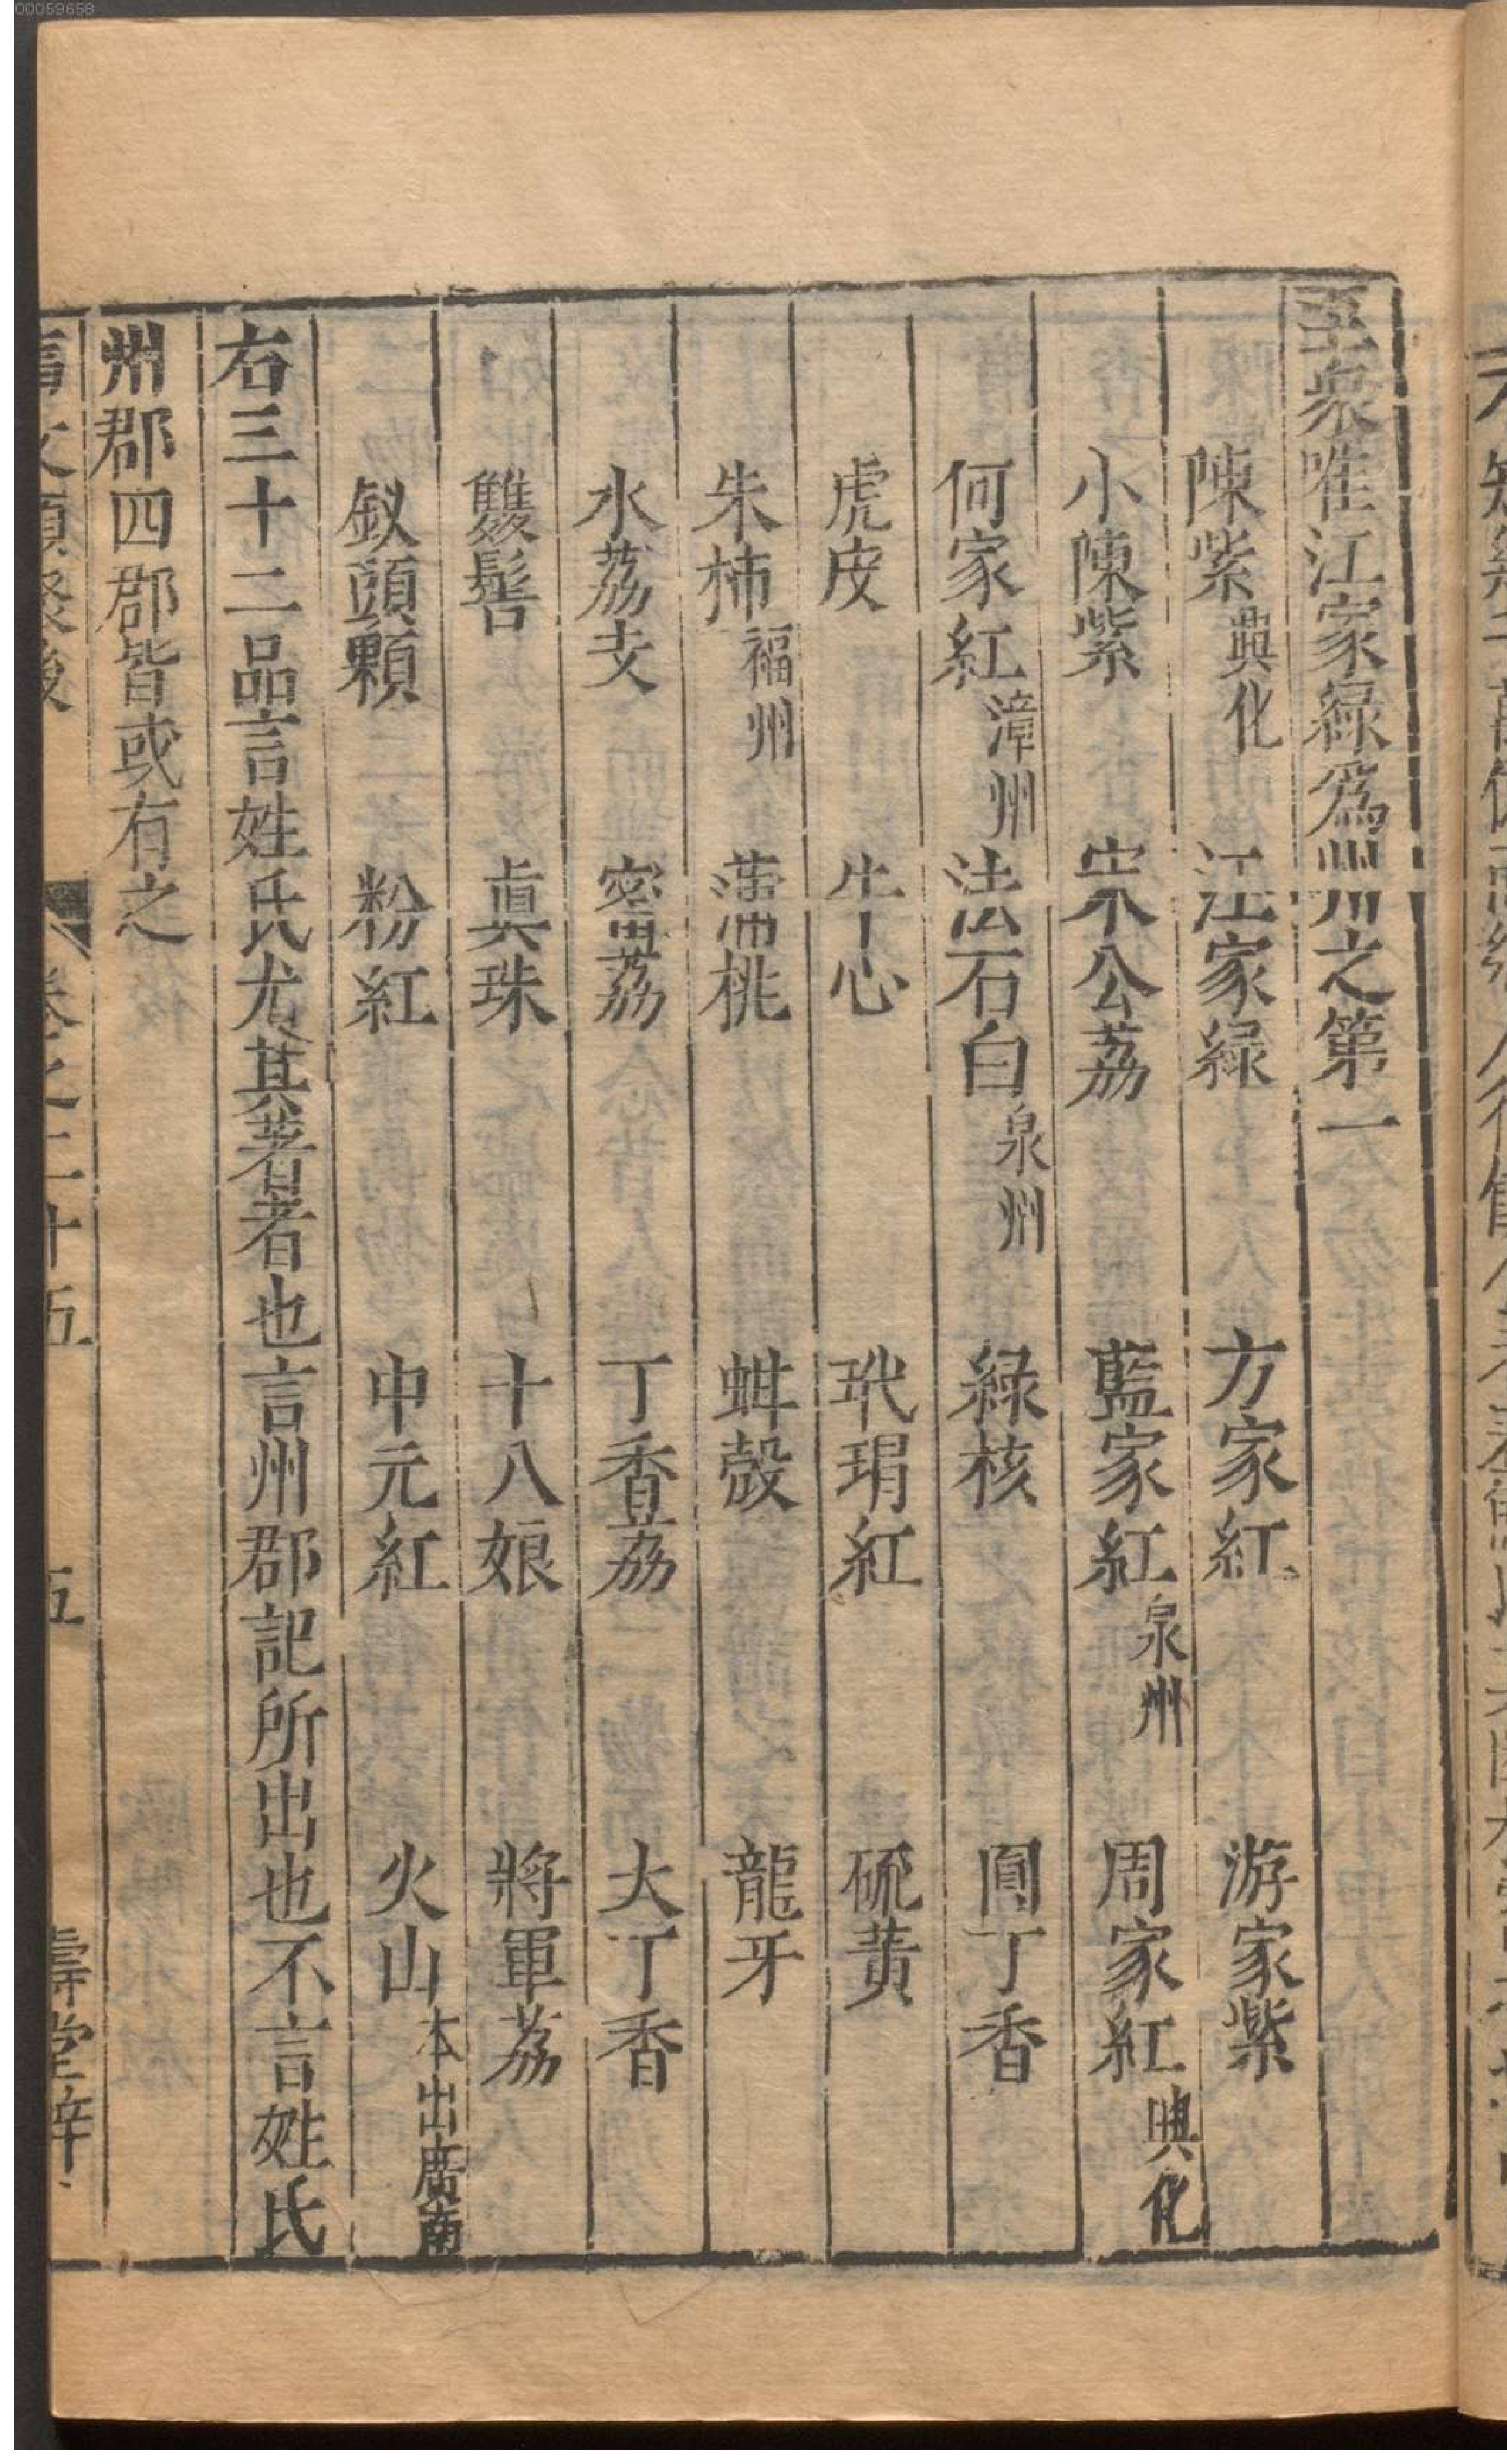 至衆唯江家緑爲州之第一
陳紫興化 江家緑 方家紅 游家紫
小陳紫 宋公荔 藍家紅泉州 周家紅興化
何家紅漳州 法石白泉州 緑核 圓丁香
虎皮 牛心 玳瑁紅 硫黄
朱柿福州 蒲桃 蚶殼 龍牙
水荔支 蜜荔 丁香荔 大丁香
雙髻 眞珠 十八娘 將軍荔
釵頭顆 粉紅 中元紅 火山本出廣南
右三十二品言姓氏尤其著者也言州郡記所出也不言姓氏
州郡四郡皆或有之
事文類聚後 卷之二十五 五 壽堂梓
00059658